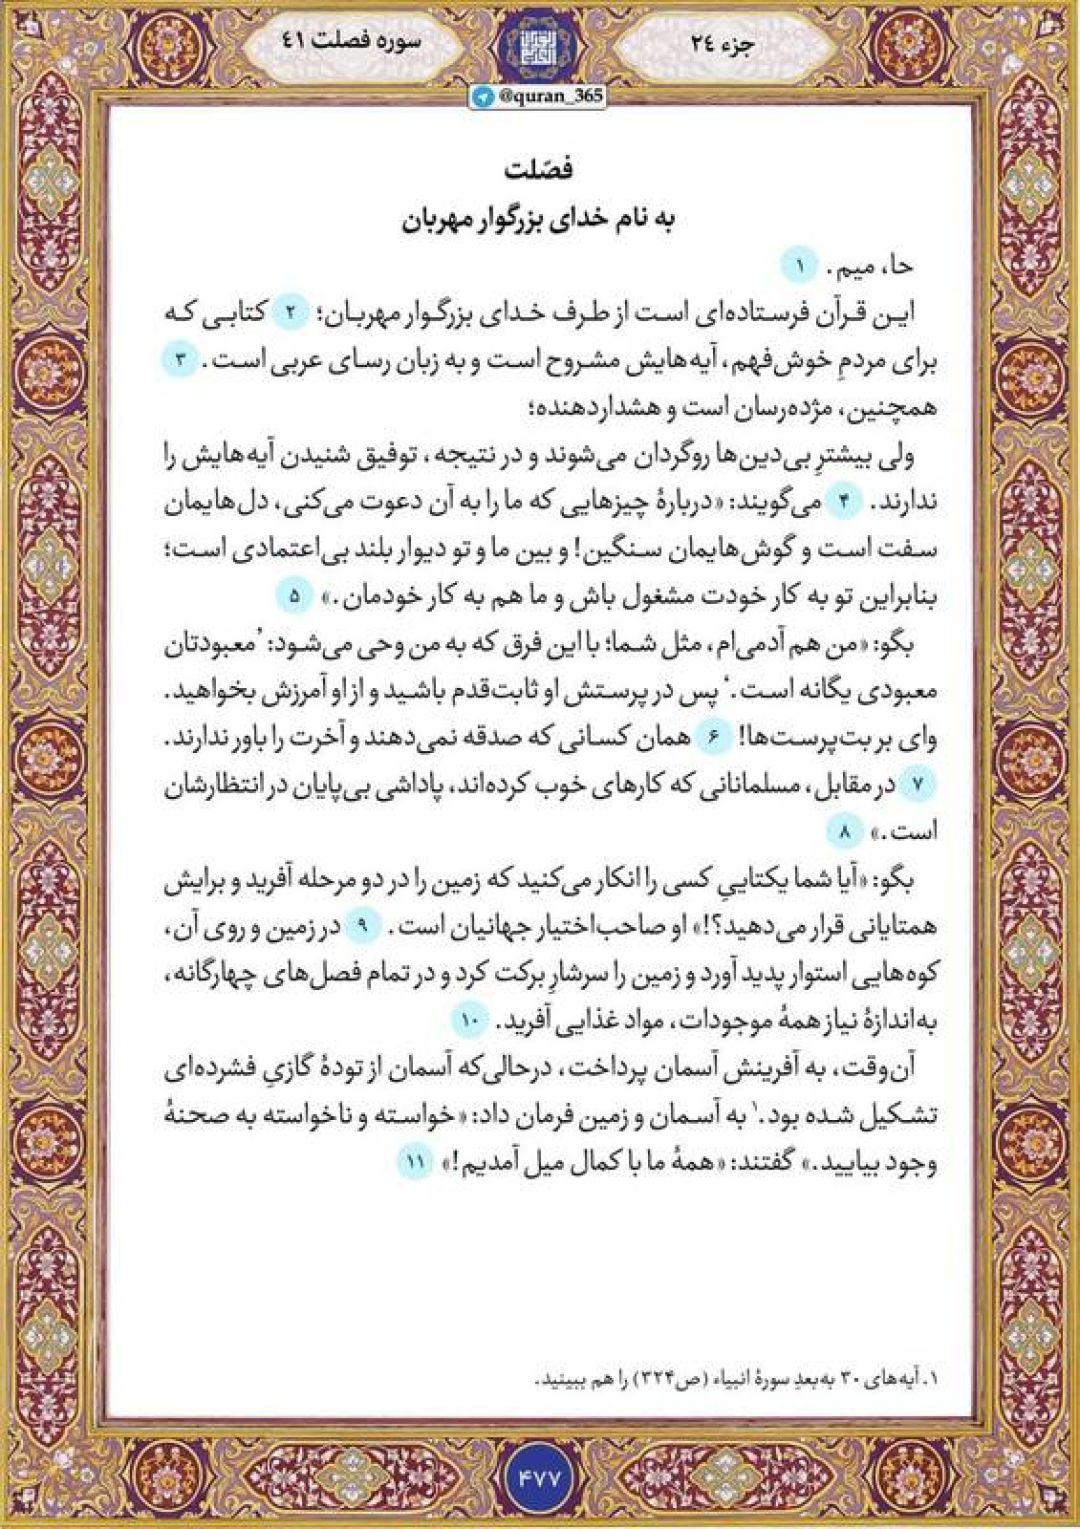 جزء ۲۴
سوره فصلت ۴۱
@quran_365
فصّلت
به نام خدای بزرگوار مهربان
حا، میم. ۱
این قرآن فرستاده‌ای است از طرف خدای بزرگوار مهربان؛ ۲ کتابی که
برای مردمِ خوش‌فهم، آیه‌هایش مشروح است و به زبان رسای عربی است. ۳
همچنین، مژده‌رسان است و هشداردهنده؛
ولی بیشترِ بی‌دین‌ها روگردان می‌شوند و در نتیجه، توفیق شنیدن آیه‌هایش را
ندارند. ۴ می‌گویند: «دربارهٔ چیزهایی که ما را به آن دعوت می‌کنی، دل‌هایمان
سفت است و گوش‌هایمان سنگین! و بین ما و تو دیوار بلند بی‌اعتمادی است؛
بنابراین تو به کار خودت مشغول باش و ما هم به کار خودمان.» ۵
بگو: «من هم آدمی‌ام، مثل شما؛ با این فرق که به من وحی می‌شود: ‘معبودتان
معبودی یگانه است.’ پس در پرستش او ثابت‌قدم باشید و از او آمرزش بخواهید.
وای بر بت‌پرست‌ها! ۶ همان کسانی که صدقه نمی‌دهند و آخرت را باور ندارند.
۷ در مقابل، مسلمانانی که کارهای خوب کرده‌اند، پاداشی بی‌پایان در انتظارشان
است.» ۸
بگو: «آیا شما یکتاییِ کسی را انکار می‌کنید که زمین را در دو مرحله آفرید و برایش
همتایانی قرار می‌دهید؟!» او صاحب‌اختیار جهانیان است. ۹ در زمین و روی آن،
کوه‌هایی استوار پدید آورد و زمین را سرشارِ برکت کرد و در تمام فصل‌های چهارگانه،
به‌اندازهٔ نیاز همهٔ موجودات، مواد غذایی آفرید. ۱۰
آن‌وقت، به آفرینش آسمان پرداخت، درحالی‌که آسمان از تودهٔ گازیِ فشرده‌ای
تشکیل شده بود.۱ به آسمان و زمین فرمان داد: «خواسته و ناخواسته به صحنهٔ
وجود بیایید.» گفتند: «همهٔ ما با کمال میل آمدیم!» ۱۱
۱. آیه‌های ۳۰ به‌بعدِ سورهٔ انبیاء (ص۳۲۴) را هم ببینید.
۴۷۷